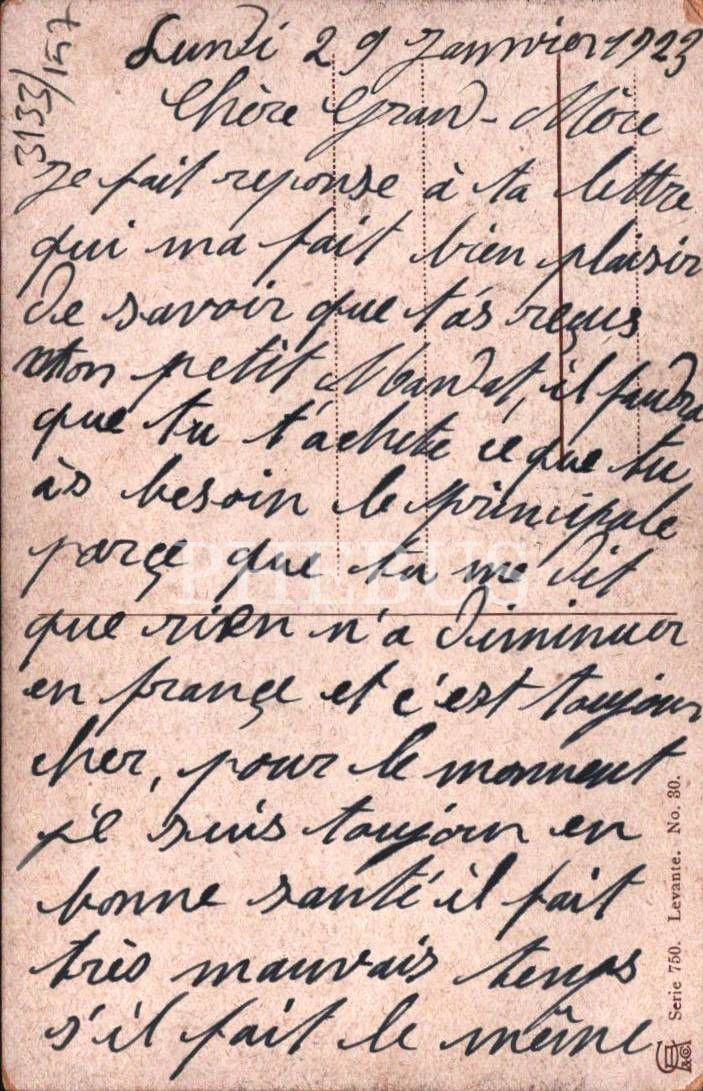 3133/157
Lundi 29 Jannvier 1923
Chère Grand-Mère
Je fait reponse à ta lettre
qui ma fait bien plaisir
de savoir que t'ás reçus
mon petit Mandat, il faudra
que tu t'achete ce que tu
às besoin le principale
parçe que tu me dit
PHEBUS
que rien n'a diminuer
en françe et c'est toujour
cher, pour le momment
je suis toujour en
bonne santé il fait
très mauvais temps
s'il fait le même
Serie 750. Levante. No. 30.